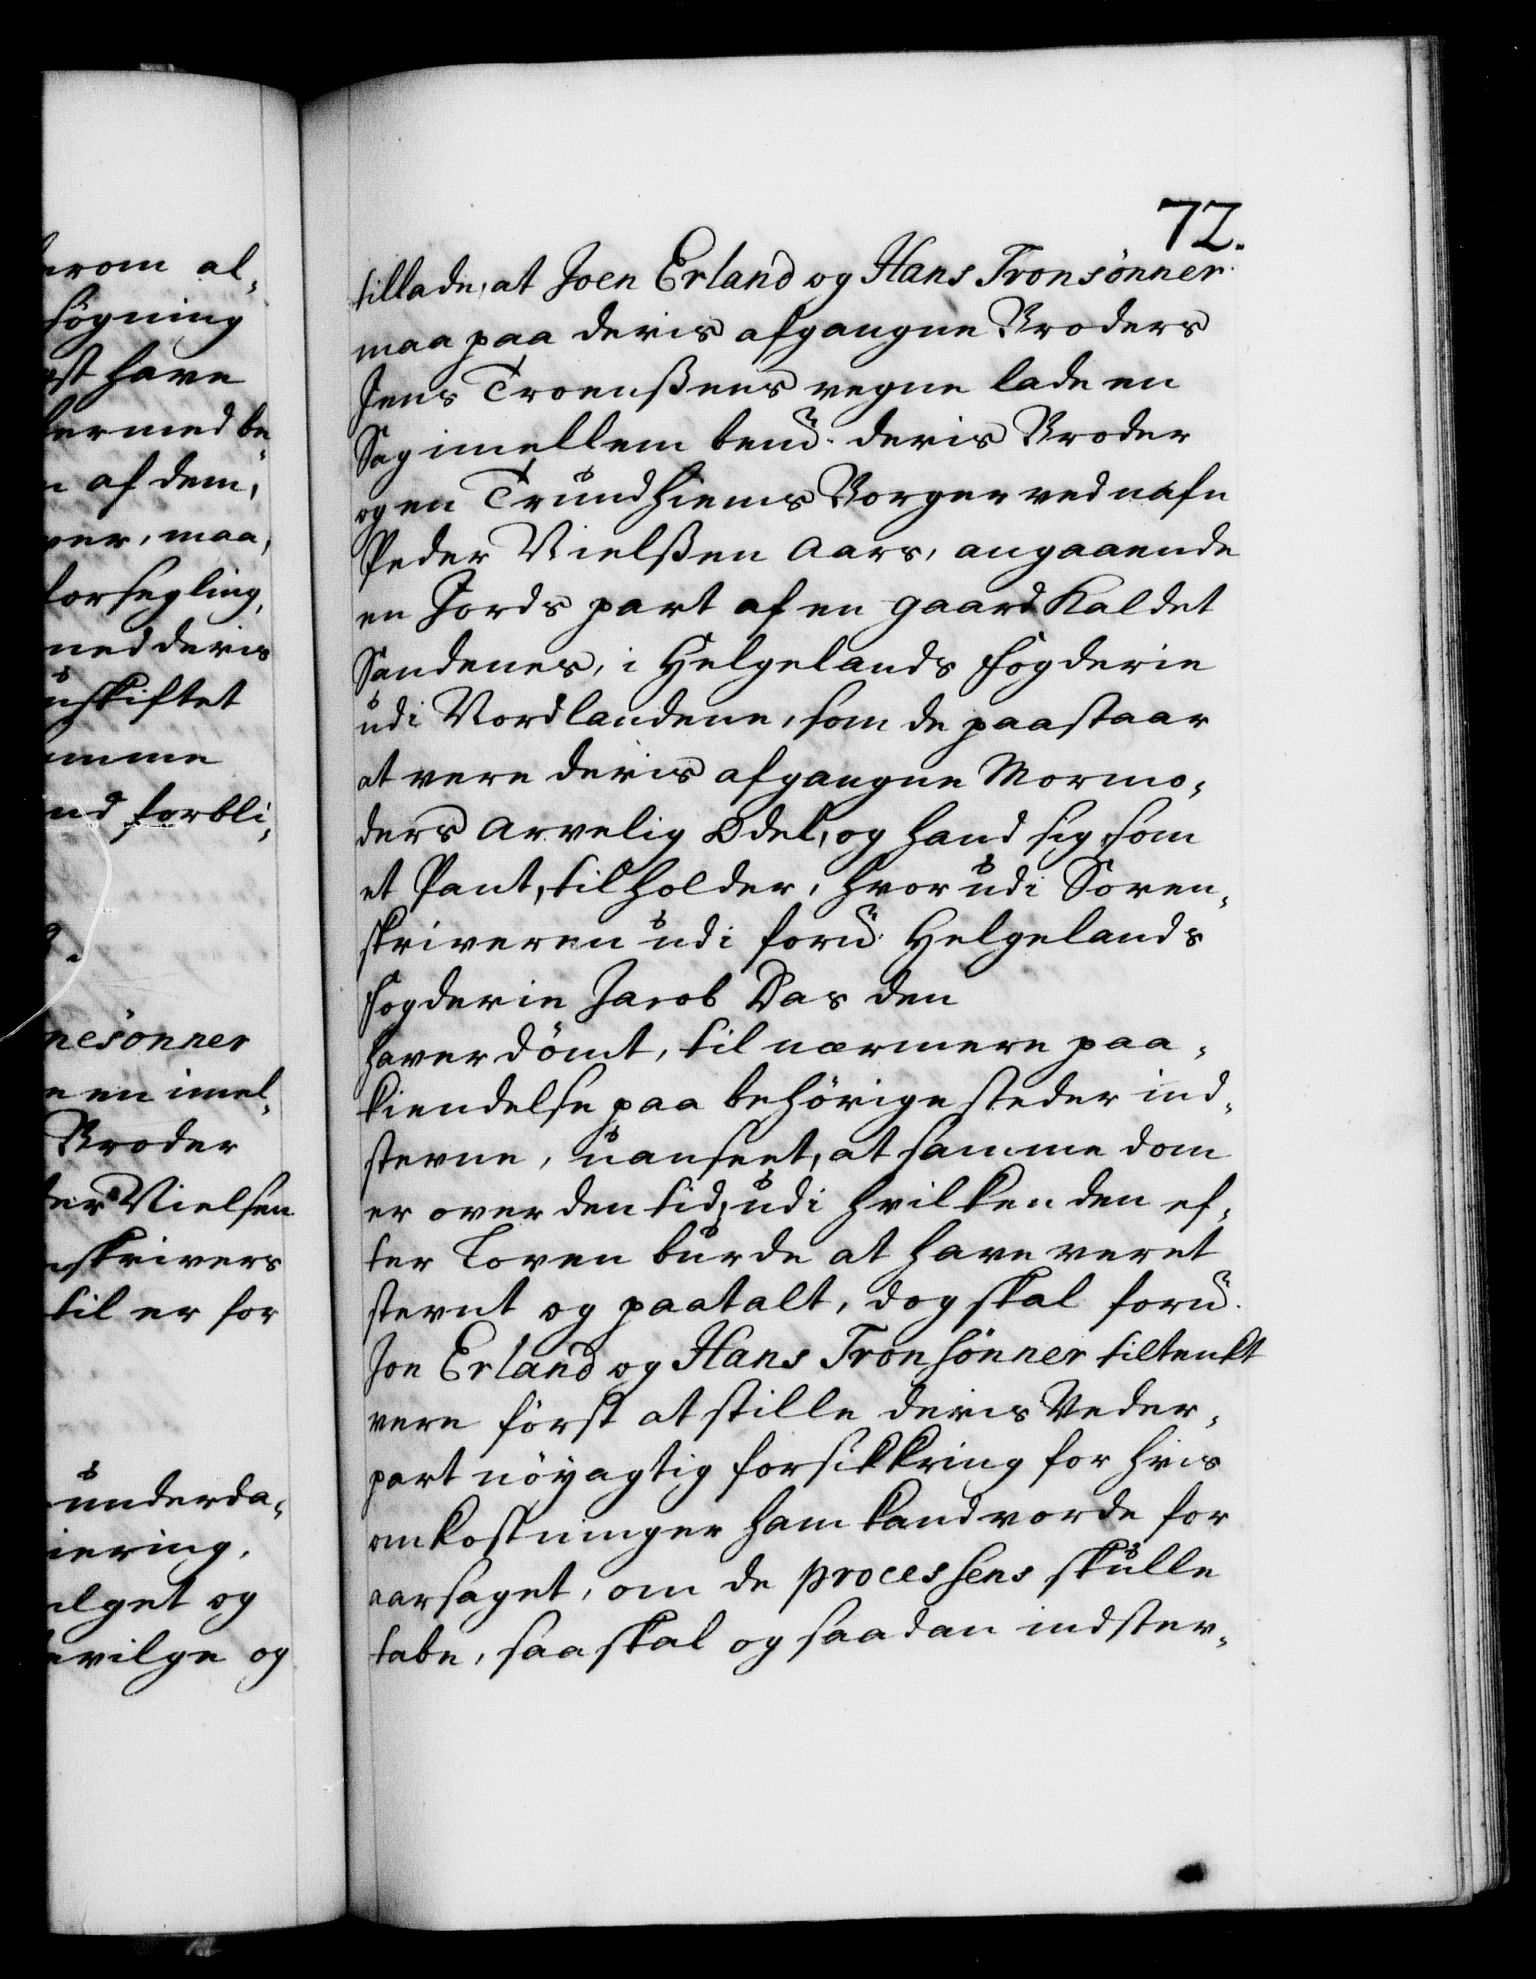 72.
tillade, at Joen Erland og Hans Tronsönner
maa paa deris afgangne Broders
Jens Troenßens vegne lade en
Sag imellem bemt. deris Broder
og en Trundhiems Borger ved nafn
Peder Nielßen Aars, angaaende
en Jords part af en gaard kaldet
Sandenes, i Helgelands fogderie
udi Nordlandene, som de paastaar
at vere deris afgangne Mormo-
ders Arvelig Odel, og hand sig, som
et Pant, tilholder, hvorudi Soren-
skriveren udi fornt. Helgelands
fogderie Jacob Das den
haver dömt, til nærmere paa-
kiendelse paa behörige steder ind-
stevne, uanseet, at samme dom
er over den tid, udi hvilken den ef-
ter Loven burde at have veret
stevnt og paatalt, dog skal fornt.
Jon Erland og Hans Tronsönner tiltenkt
vere först at stille deris Veder-
part nöyagtig forsikkring for hvis
omkostninger ham kand vorde for
aarsaget, om de processens skulle
tabe, saa skal og saadan indstev-
erom al-
sögning
st have
hermed be
n af dem,
ver, maa,
forsegling,
med deris
uskiftet
amme
nd forbli-
nesönner
e en imel-
Broder
der Nielsen
nskrivers
til er for
underda-
iering,
ilget og
evilge og